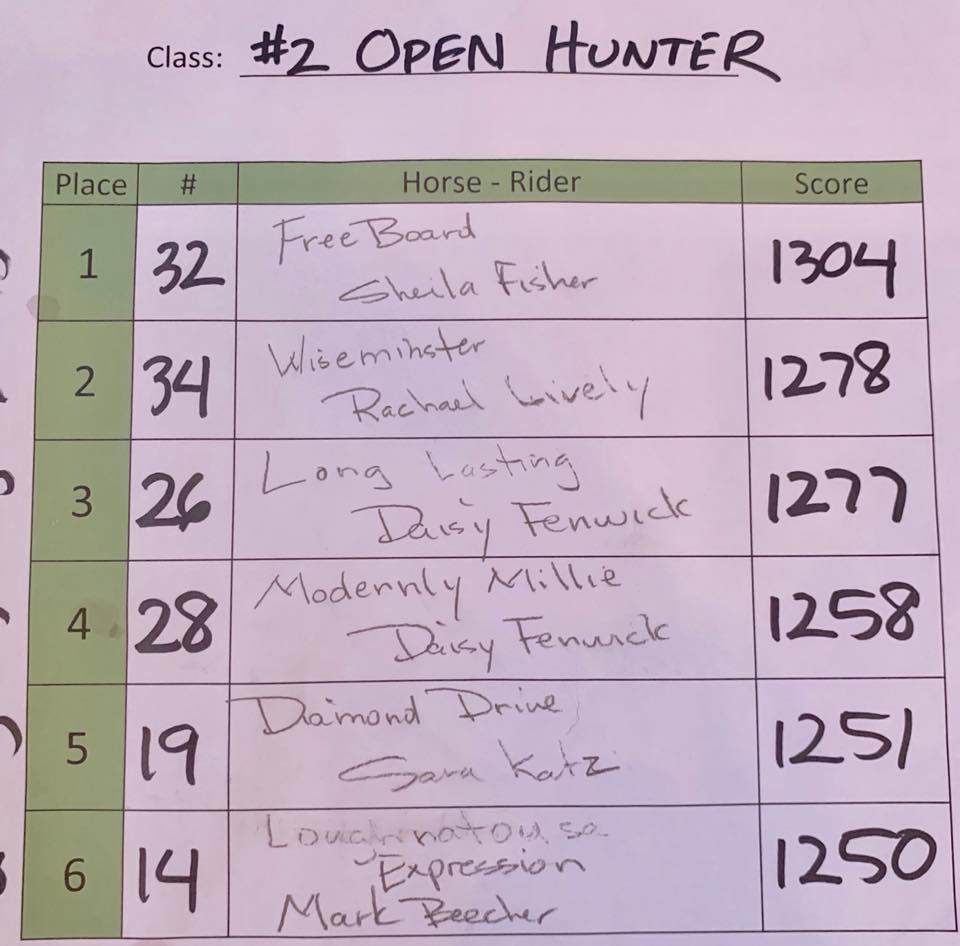 Class: #2 OPEN HUNTER
Place # Horse - Rider Score
1 32 Free Board 1304
Sheila Fisher
2 34 Wiseminster 1278
Rachael Lively
3 26 Long Lasting 1277
Daisy Fenwick
4 28 Modernly Millie 1258
Daisy Fenwick
5 19 Daimond Drive 1251
Sara Katz
6 14 1250
Expression
Mark Beecher